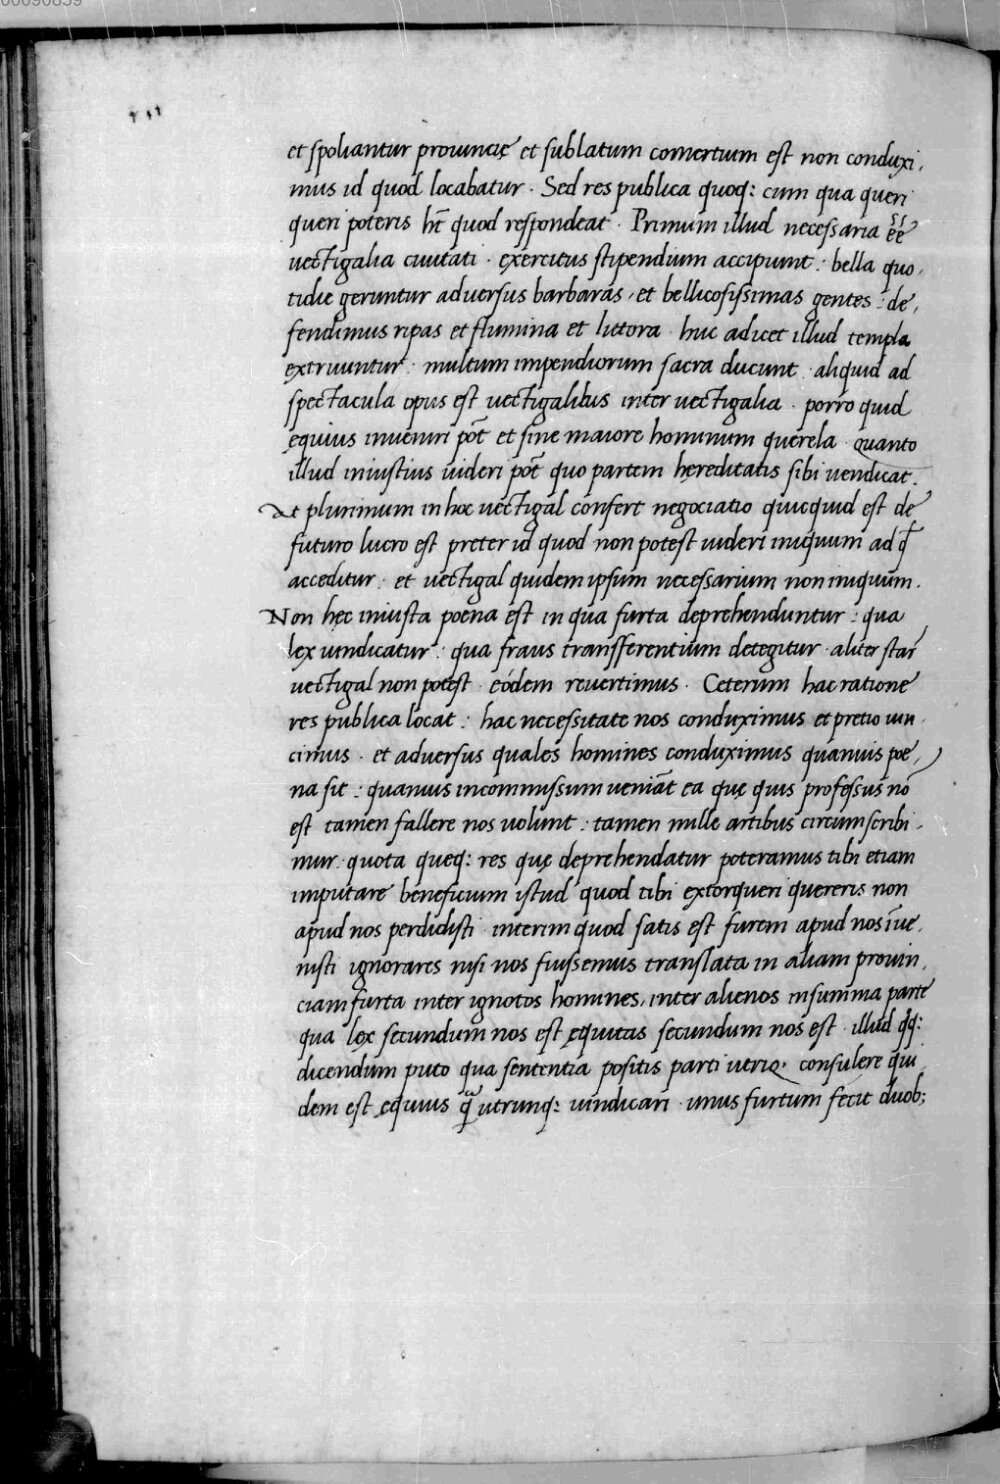 00090859
et spoliantur prouincię et sublatum comertium est non conduxi,
mus id quod locabatur. Sed res publica quoq: cum qua queri
queri poteris ht̄ quod respondeat. Primum illud necessaria ee
uectigalia ciuitati. exercitus stipendium accipiunt: bella quo,
tidie geruntur adversus barbaras, et bellicosissimas gentes: de,
fendimus ripas et flumina et littora. huc adicet illud templa
extruuntur: multum impendiorum sacra ducunt. aliquid ad
spectacula opus est uectigalibus inter uectigalia. porro quid
ęquius inueniri pōt et sine maiore hominum querela. quanto
illud iniustius uideri pōt quo partem hęreditatis sibi uendicat.
At plurimum in hoc uectigal confert negociatio quicquid est de
futuro lucro est preter id quod non potest uideri iniquum ad q̄
acceditur. et uectigal quidem ipsum necessarium non iniquum.
Non hęc iniusta poena est in qua furta deprehenduntur: qua
lex uindicatur: qua fraus transfferentium detegitur. aliter stari
uectigal non potest. eodem reuertimus. Ceterum hac ratione
res publica locat: hac necessitate nos conduximus et pretio uin,
cimus. et adversus quales homines conduximus quamuis poe,
na sit: quamuis in commissum ueniāt ea quę quis professus nō
est tamen fallere nos uolunt: tamen mille artibus circumscribi,
mur. quota queq: res quę deprehendatur poteramus tibi etiam
imputare beneficium istud quod tibi extorqueri quereris non
apud nos perdidisti. interim quod satis est furem apud nos īue,
nisti ignorares nisi nos fuissemus translata in aliam prouin,
ciam furta inter ignotos homines, inter alienos in summa parte
qua lex secundum nos est ęquitas secundum nos est. illud q̄q:
dicendum puto qua sententia positis parti utriq. consulere qui
dem est ęquius q̄ utrunq: uindicari. unus furtum fecit duob;